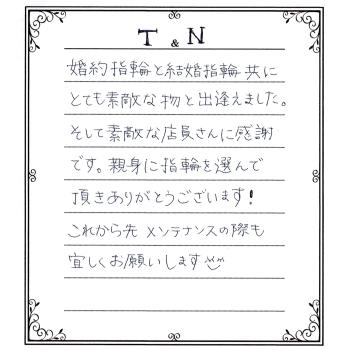 T & N
婚約指輪と結婚指輪共に
とても素敵な物と出逢えました。
そして素敵な店員さんに感謝
です。親身に指輪を選んで
頂きありがとうございます!
これから先メンテナンスの際も
宜しくお願いします